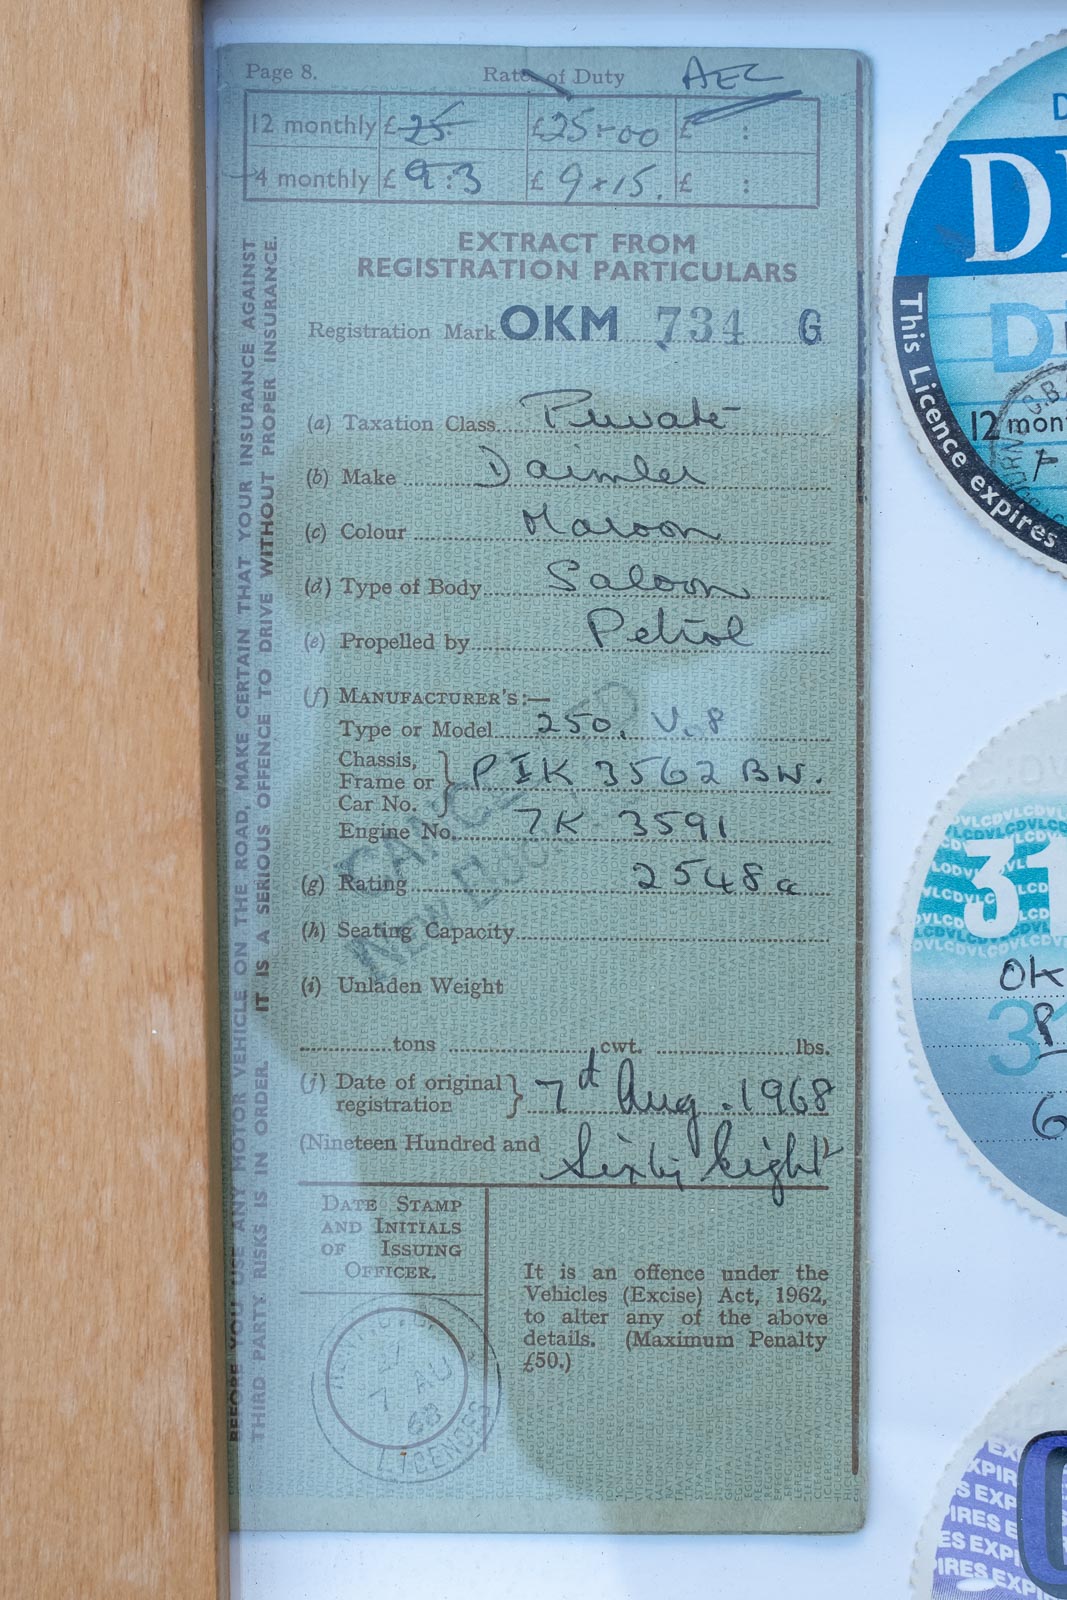 Page 8. Rates of Duty AEC
12 monthly £25 £25-00 £ :
4 monthly £ 9:3 £ 9-15. £ :
EXTRACT FROM
REGISTRATION PARTICULARS
Registration Mark OKM 734 G
(a) Taxation Class Private
(b) Make Daimler
(c) Colour Maroon
(d) Type of Body Saloon
(e) Propelled by Petrol
(f) MANUFACTURER'S:—
Type or Model 250. V.8
Chassis,
Frame or } P1K 3562 BW.
Car No.
Engine No. 7K 3591
(g) Rating 2548 cc
CANCELLED
NEW BOOK
(h) Seating Capacity
(i) Unladen Weight
tons cwt. lbs.
(j) Date of original
registration } 7th Aug. 1968
(Nineteen Hundred and Sixty Eight
DATE STAMP
AND INITIALS
OF ISSUING
OFFICER.
It is an offence under the
Vehicles (Excise) Act, 1962,
to alter any of the above
details. (Maximum Penalty
£50.)
7 AU
68
LICENCES
BEFORE YOU USE ANY MOTOR VEHICLE ON THE ROAD, MAKE CERTAIN THAT YOUR INSURANCE AGAINST
THIRD PARTY RISKS IS IN ORDER. IT IS A SERIOUS OFFENCE TO DRIVE WITHOUT PROPER INSURANCE.
This Licence expires
12 mon
31
OK
31